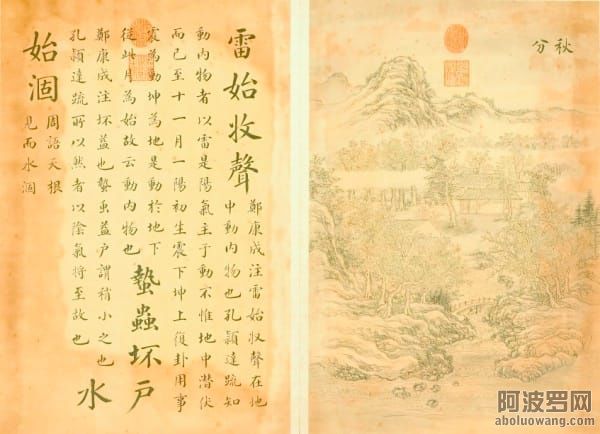 秋分
雷始收聲
鄭康成注雷始收聲在地
中動內物也孔穎達疏知
動內物者以雷是陽氣主于動不惟地中潛伏
而已至十一月一陽初生震下坤上復卦用事
震為動坤為地是動於地下
從此月為始故云動內物也
蟄蟲坏戶
鄭康成注坏益也蟄虫益戶謂稍小之也
孔穎達疏所以然者以陰氣將至故也
水
始涸
周語天根
見而水涸
阿波罗网
aboluowang.com